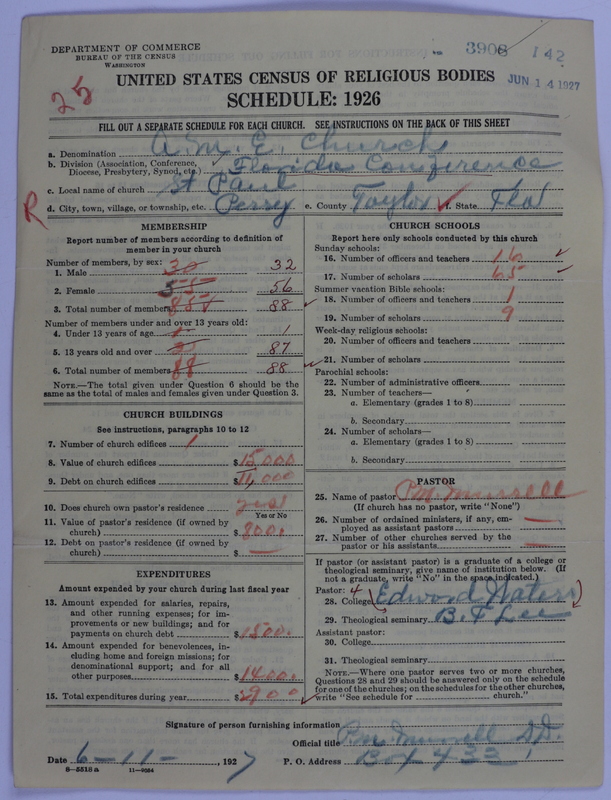 DEPARTMENT OF COMMERCE
BUREAU OF THE CENSUS
WASHINGTON
3908 142
JUN 14 1927
25
UNITED STATES CENSUS OF RELIGIOUS BODIES
SCHEDULE: 1926
FILL OUT A SEPARATE SCHEDULE FOR EACH CHURCH. SEE INSTRUCTIONS ON THE BACK OF THIS SHEET
a. Denomination A. M. E. Church
b. Division (Association, Conference, Diocese, Presbytery, Synod, etc.) Florida Conference
c. Local name of church St Paul
R
d. City, town, village, or township, etc. Perry e. County Taylor f. State Fla
MEMBERSHIP
Report number of members according to definition of
member in your church
Number of members, by sex:
1. Male 30 32
2. Female 55 56
3. Total number of members 85 88
Number of members under and over 13 years old:
4. Under 13 years of age 1 1
5. 13 years old and over 87
6. Total number of members 88 88
NOTE.—The total given under Question 6 should be
same as the total of males and females given under Question 3.
CHURCH BUILDINGS
See instructions, paragraphs 10 to 12
7. Number of church edifices 1
8. Value of church edifices $15,000
9. Debt on church edifices $11,000
10. Does church own pastor's residence yes
Yes or No
11. Value of pastor's residence (if owned by
church) $ 800.
12. Debt on pastor's residence (if owned by
church) $ —
EXPENDITURES
Amount expended by your church during last fiscal year
13. Amount expended for salaries, repairs,
and other running expenses; for im-
provements or new buildings; and for
payments on church debt $1500.
14. Amount expended for benevolences, in-
cluding home and foreign missions; for
denominational support; and for all
other purposes $1400.
15. Total expenditures during year $2900
CHURCH SCHOOLS
Report here only schools conducted by this church
Sunday schools:
16. Number of officers and teachers 16
17. Number of scholars 65
Summer vacation Bible schools:
18. Number of officers and teachers 1
19. Number of scholars 9
Week-day religious schools:
20. Number of officers and teachers
21. Number of scholars
Parochial schools:
22. Number of administrative officers
23. Number of teachers—
a. Elementary (grades 1 to 8)
b. Secondary
24. Number of scholars—
a. Elementary (grades 1 to 8)
b. Secondary
PASTOR
25. Name of pastor P.M.
(If church has no pastor, write "None")
26. Number of ordained ministers, if any, em-
ployed as assistant pastors —
27. Number of other churches served by the
pastor or his assistants —
If pastor (or assistant pastor) is a graduate of a college or
theological seminary, give name of institution below. (If
not a graduate, write "No" in the space indicated.)
Pastor: 4
28. College Edword Waters
29. Theological seminary B. F Lee
Assistant pastor:
30. College
31. Theological seminary
NOTE.—Where one pastor serves two or more churches,
Questions 28 and 29 should be answered only on the schedule
for one of the churches; on the schedules for the other churches,
write "See schedule for church."
Signature of person furnishing information
Official title P.M. D.D.
Date 6-11-, 1927 P. O. Address BX 432
8-5518a 11-9084